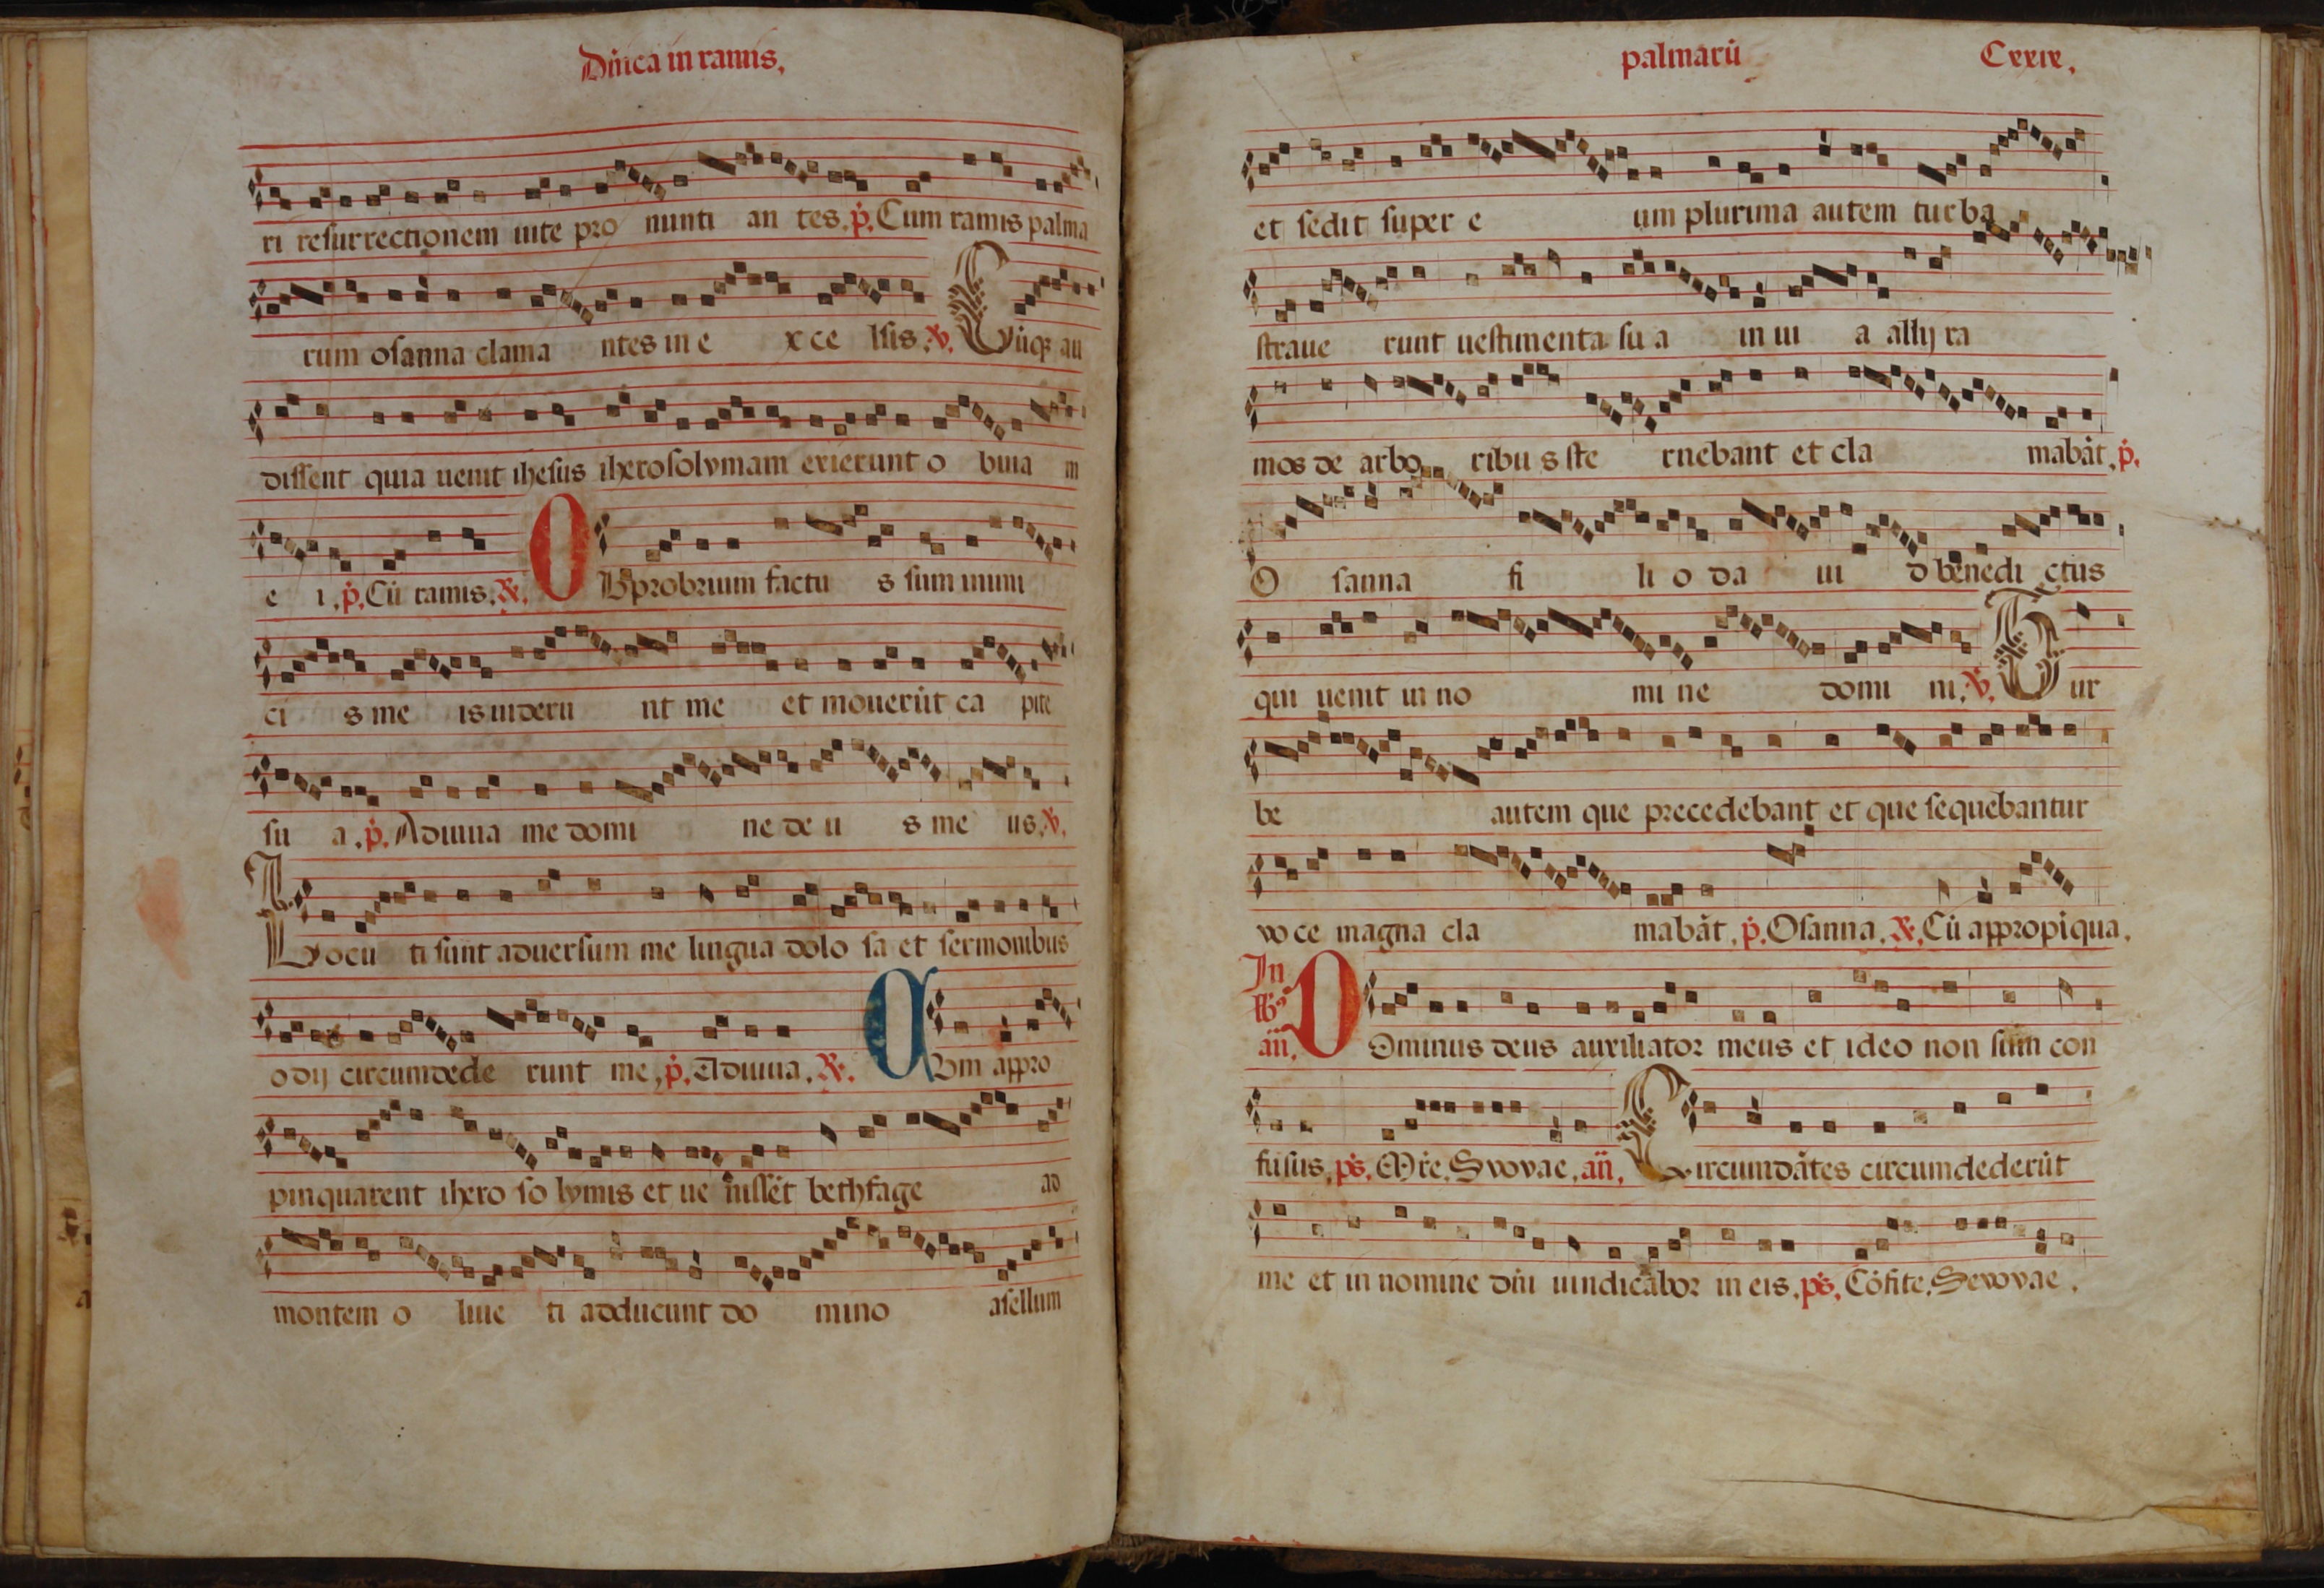 Dn̄ica in ramis.
ri resurrectionem uite pro nunti an tes. p̄. Cum ramis palma
rum osanna clama ntes in e xce lsis. v̄. Cūq̄ au
dissent quia uenit ihesus iherosolymam exierunt o buia m
e i. p̄. Cū ramis. R̄. O Bprobrium factu s sum nimi
ci s me is uideru nt me et mouerūt ca pite
su a. p̄. Adiuua me domi ne de u s me us. v̄.
Locu ti sunt aduersum me lingua dolo sa et sermonibus
odij circumdede runt me, p̄. Adiuua. R̄. Cum appro
pinquarent ihero so lymis et ue nissēt bethfage ad
montem o liue ti adducunt do mino asellum
palmarū Cxxix.
et sedit super e um plurima autem turba
straue runt uestimenta su a in ui a alij ra
mos de arbo ribu s ste rnebant et cla mabāt. p̄.
O sanna fi li o da ui d benedi ctus
qui uenit in no mi ne domi ni. v̄. Tur
be autem que precedebant et que sequebantur
vo ce magna cla mabāt. p̄. Osanna. R̄. Cū appropīqua.
In
añ. DOminus deus auxiliator meus et ideo non sum con
fusus. ps. Mr̄e. Svovae. añ. Circumdātes circumdederūt
me et in nomine dn̄i uindicabor in eis. ps. Cōfite. Sevovae.